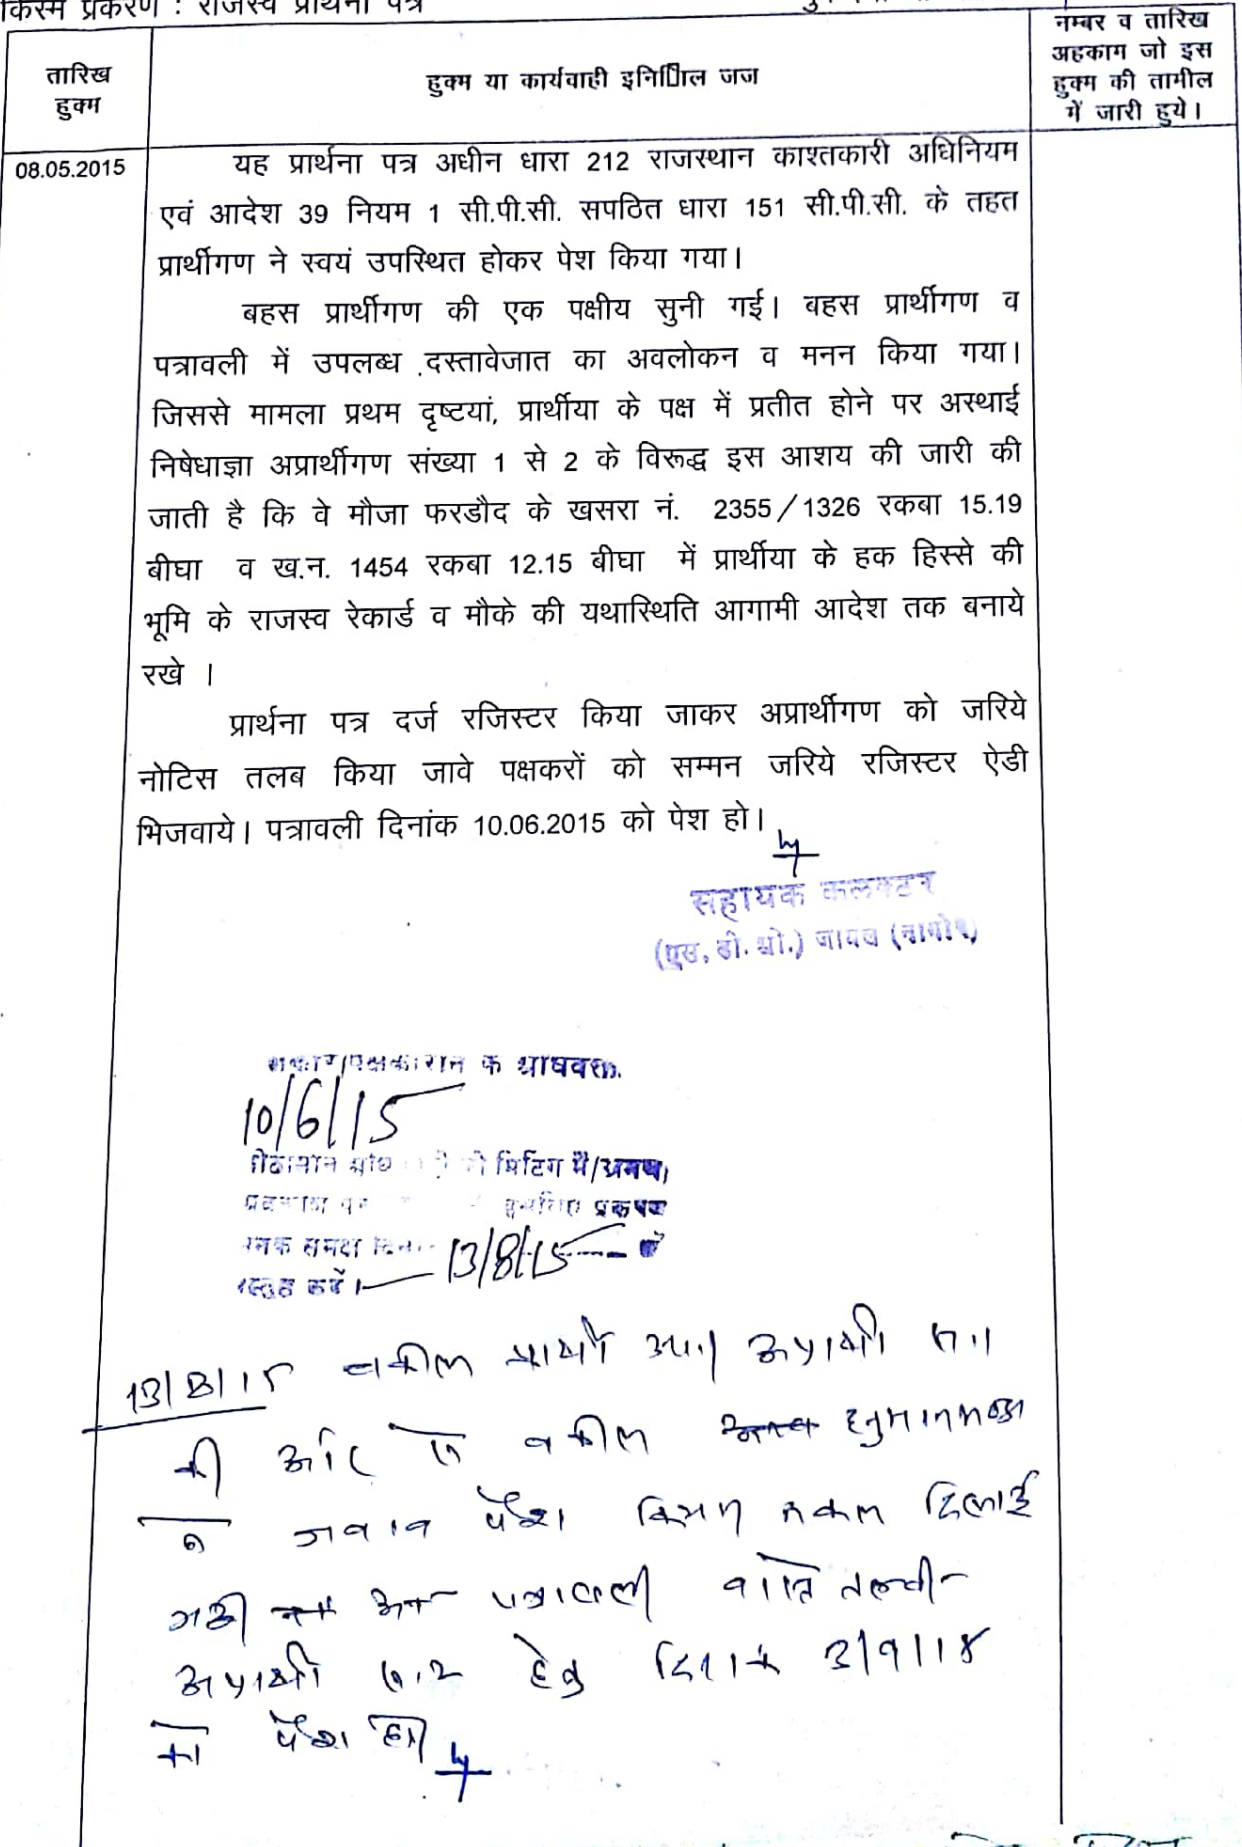 किस्म प्रकरण : राजस्व प्रार्थना पत्र
तारिख
हुक्म
हुक्म या कार्यवाही इनिशिाल जज
नम्बर व तारिख
अहकाम जो इस
हुक्म की तामील
में जारी हुये।
08.05.2015
यह प्रार्थना पत्र अधीन धारा 212 राजस्थान काश्तकारी अधिनियम
एवं आदेश 39 नियम 1 सी.पी.सी. सपठित धारा 151 सी.पी.सी. के तहत
प्रार्थीगण ने स्वयं उपस्थित होकर पेश किया गया।
बहस प्रार्थीगण की एक पक्षीय सुनी गई। बहस प्रार्थीगण व
पत्रावली में उपलब्ध दस्तावेजात का अवलोकन व मनन किया गया।
जिससे मामला प्रथम दृष्टयां, प्रार्थीया के पक्ष में प्रतीत होने पर अस्थाई
निषेधाज्ञा अप्रार्थीगण संख्या 1 से 2 के विरूद्ध इस आशय की जारी की
जाती है कि वे मौजा फरडौद के खसरा नं. 2355/1326 रकबा 15.19
बीघा व ख.न. 1454 रकबा 12.15 बीघा में प्रार्थीया के हक हिस्से की
भूमि के राजस्व रेकार्ड व मौके की यथास्थिति आगामी आदेश तक बनाये
रखे ।
प्रार्थना पत्र दर्ज रजिस्टर किया जाकर अप्रार्थीगण को जरिये
नोटिस तलब किया जावे पक्षकरों को सम्मन जरिये रजिस्टर ऐडी
भिजवाये। पत्रावली दिनांक 10.06.2015 को पेश हो।
सहायक कलक्टर
(एस. डी. ओ.) जायल (नागौर)
10/6/15
मिटिंग में
13/8/15
13/8/15 वकील प्रार्थी अप्रार्थी
की ओर से वकील हनुमान
ने जवाब पेश किया नकल दिलाई
गई पत्रावली वास्ते तलबी
अप्रार्थी हेतु दिनांक
को पेश हो